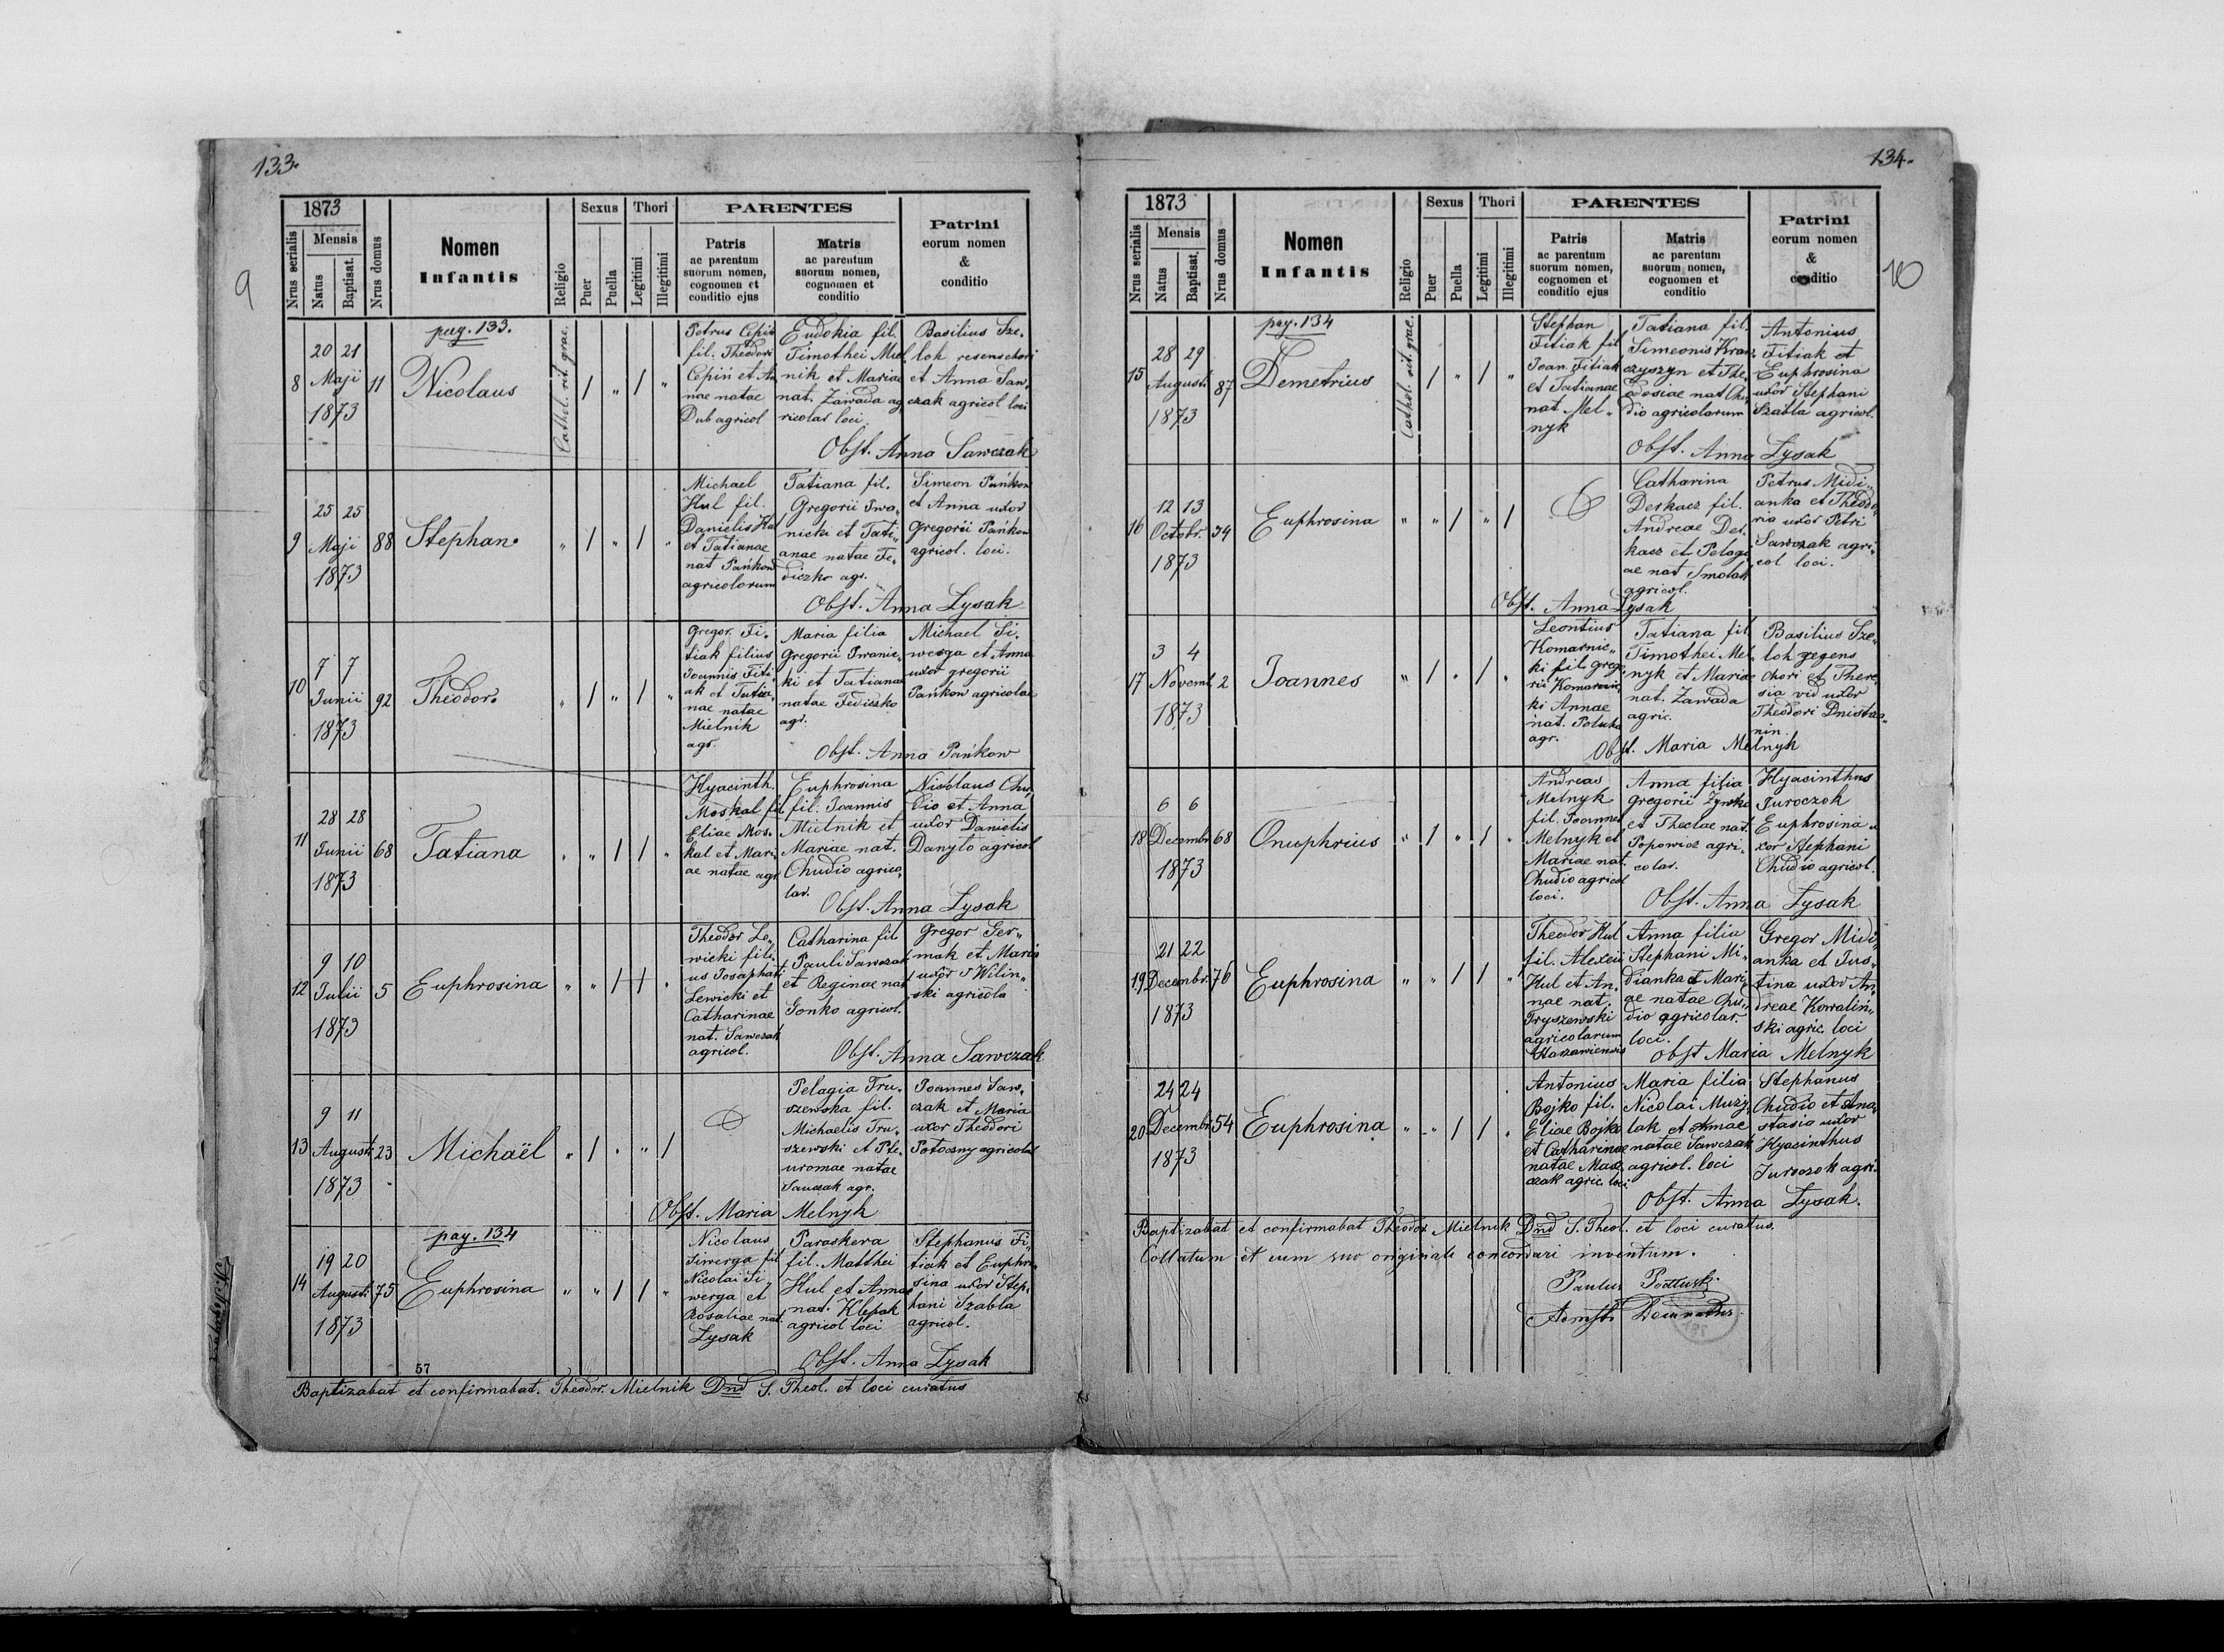 133.
9
1873
Mensis
Nrus serialis
Natus
Baptisat.
Nrus domus
Nomen
Infantis
Religio
Sexus
Puer
Puella
Thori
Legitimi
Illegitimi
PARENTES
Patris
ac parentum
suorum nomen,
cognomen et
conditio ejus
Matris
ac parentum
suorum nomen,
cognomen et
conditio
Patrini
eorum nomen
&
conditio
pag. 133.
8
20 21
Maji
1873
11
Nicolaus
Cathol. rit. grae.
/ " / "
Petrus Cepiń
fil. Theodori
Cepiń et An
nae natae
Dub agricol
Eudokia fil.
Timothei Miel
nik et Mariae
nat. Zawada ag
ricolar loci
Basilius Sze-
loh
et Anna Saw-
czak agricol loci
Obst. Anna Sawczak
9
25 25
Maji
1873
88
Stephan.
" / " / "
Michael
Hul fil.
Danielis Hul
et Tatianae
nat Pańkow
agricolorum
Tatiana fil.
Gregorii Iwa„
nicki et Tati„
anae natae Fe„
diczko agr.
Simeon Pańkow
et Anna uxor
Gregorii Pańkow
agricol. loci.
Obst. Anna Lysak
10
7 7
Junii
1873
92
Theodor.
" / " / "
Gregor. Fi-
tiak filius
Joannis Fiti
ak et Tatia
nae natae
Mielnik
agr.
Maria filia
Gregorii Iwanic„
ki et Tatianae
natae Fediczko
agr.
Michael Si-
werga et Anna
uxor gregorii
Pańkow agricolae
Obst. Anna Pańkow
11
28 28
Junii
1873
68
Tatiana
" " / / "
Hyacinth.
Moskal fil
Eliae Mos.
kal et Mari
ae natae agr
Euphrosina
fil. Joannis
Mielnik et
Mariae nat.
Chudio agrico,
lar.
Nicolaus Chu,
dio et Anna
uxor Danielis
Danyło agricol
Obst. Anna Lysak
12
9 10
Julii
1873
5
Euphrosina
" " / / "
Theodor Le„
wicki fili„
us Josaphati
Lewicki et
Catharinae
nat. Sawczak
agricol.
Catharina fil
Pauli Sawczak
et Reginae nat
Gonko agricol.
Gregor Ger„
mak et Maria
uxor Wilin„
ski agricola
Obst. Anna Sawczak
13
9 11
Augusti
1873
23
Michaël
" / " " /
Pelagia Tru-
szewska fil.
Michaelis Tru-
szewski et Pte-
uromae natae
Sawczak agr.
Joannes Saw,
czak et Maria
uxor Theodori
Potoczny agricolae
Obst. Maria Melnyk
pag. 134
14
19 20
Augusti
1873
75
Euphrosina
" " / / "
Nicolaus
Siwerga fil
Nicolai Si„
werga et
Rosaliae nat.
Lysak
Paraskeva
fil. Matthei
Hul et Annae
nat. Klepak
agricol loci
Stephanus Fi„
tiak et Euphro„
sina uxor Step,
hani Szabla
agricol.
Obst. Anna Lysak
57
Baptizabat et confirmabat. Theodor. Mielnik Dnd S. Theol. et loci curatus
134.
10
1873
Mensis
Nrus serialis
Natus
Baptisat.
Nrus domus
Nomen
Infantis
Religio
Sexus
Puer
Puella
Thori
Legitimi
Illegitimi
PARENTES
Patris
ac parentum
suorum nomen,
cognomen et
conditio ejus
Matris
ac parentum
suorum nomen,
cognomen et
conditio
Patrini
eorum nomen
&
conditio
pag. 134
15
28 29
Augusti
1873
87
Demetrius
Cathol. rit. grae.
/ " / "
Stephan
Fitiak fil
Joan. Fitiak
et Tatianae
nat. Mel„
nyk
Tatiana fil.
Simeonis Kraw
czyszyn et The,
odosiae nat Chu,
dio agricolarum
Antonius
Fitiak et
Euphrosina
uxor Stephani
Szabla agricol.
Obst. Anna Lysak
16
12 13
Octobr.
1873
34
Euphrosina
" " / " /
Catharina
Derkacz fil.
Andreae Der
kacz et Pelagi
ae nat Smolak
agricol.
Petrus Midi„
anka et Theodo
ria uxor Petri
Sawczak agri,
col loci.
Obst. Anna Lysak
17
3 4
Novemb.
1873
2
Joannes
" / " / "
Leontius
Komarnic„
ki fil grego
rii Komarnic
ki Annae
nat. Poluha
agr.
Tatiana fil
Timothei Mel
nyk et Mariae
nat. Zawada
agric.
Basilius Sze„
loh regens
chori et There
sia vid uxor
Theodori Dnistra„
nin.
Obst. Maria Melnyk
18
6 6
Decembr.
1873
68
Onuphrius
" / " / "
Andreas
Melnyk
fil. Joannes
Melnyk et
Mariae nat.
Chudio agricol
loci.
Anna filia
gregorii Zynko
et Theclae nat.
Popowicz agri„
colar.
Hyacinthus
Juroczok
Euphrosina u
xor Stephani
Chudio agricol.
Obst. Anna Lysak
19
21 22
Decembr.
1873
76
Euphrosina
" " / / "
Theodor Hul
fil. Alexii
Hul et An„
nae nat.
Tryszewski
agricolarum
Anna filia
Stephani Mi„
dianka et Mari„
ae natae Chu„
dio agricolar.
loci.
Gregor Midi„
anka et Jus„
tina uxor An,
dreae Kowaliń„
ski agric. loci
Obst Maria Melnyk
20
24 24
Decembr.
1873
54
Euphrosina
" " / / "
Antonius
Bojko fil.
Eliae Bojko
et Catharinae
natae Mas,
czak agric. loci
Maria filia
Nicolai Muzy,
lak et Annae
natae Sawczak
agricol. loci
Stephanus
Chudio et Ana,
stasia uxor
Hyacinthus
Juroczok agri.
Obst. Anna Lysak.
Baptizabat et confirmabat Theodor Mielnik Dnd S. Theol. et loci curatus.
Collatum et cum suo originale concordari inventum.
Paulus